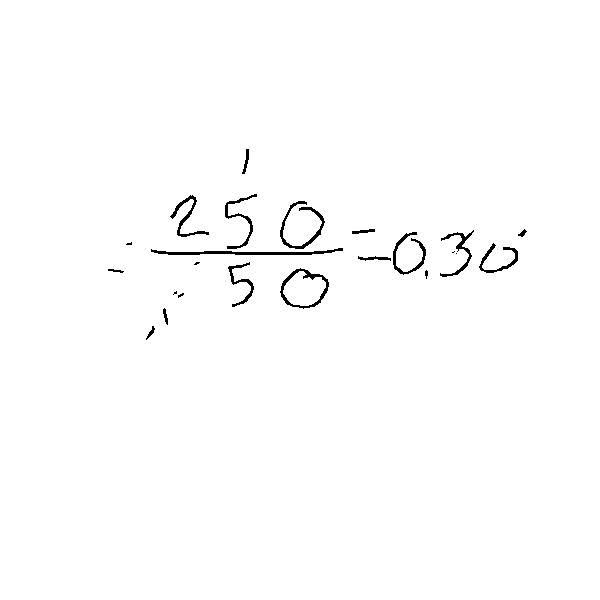 250
50
=0.30